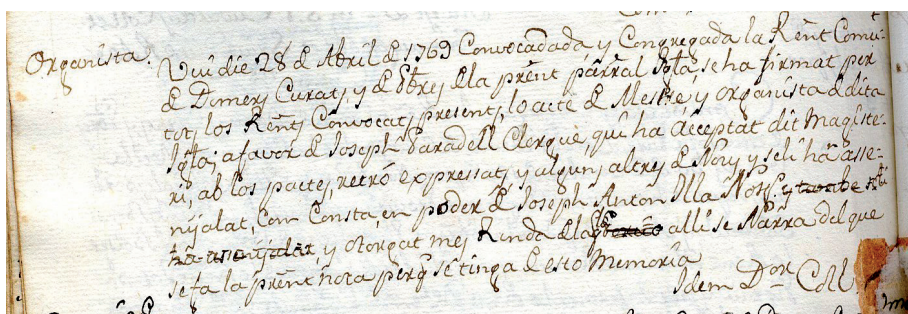 Organista.
Vui die 28 de Abril de 1769 Convocadada y Congregada la Rent Comu-
de Domers Curats, y de Pbres de la prent parral Igla, se ha firmat per
tots los Rents Convocats presents, lo acte de Mestre y organista de dita
Igla, a favor de Joseph Paradell Clergue, qui ha acceptat dit Magiste-
ri, ab los pactes, retró expressats, y alguns altres de Nous, y seli há asse-
nyalat, com Consta en poder de Joseph Anton Illa Nott.
ha assenyalat, y otorgat mes Renda alli se Narra del que
se fa la prent nota perq. se tinga de esto Memoria
Idem Dor. Coll.